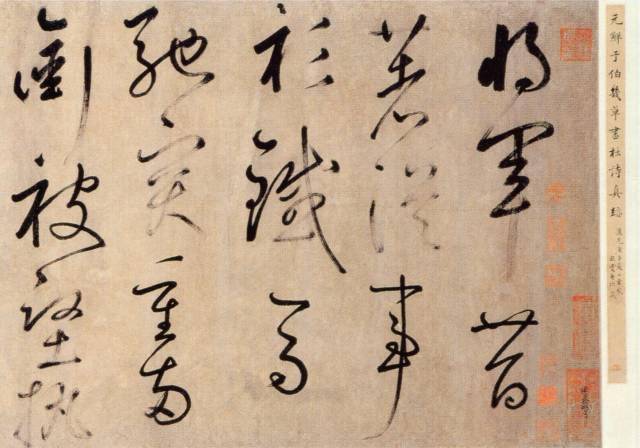 元鮮于伯幾草書杜詩真蹟
將軍昔
著從事
衫鐵馬
馳突重兩
銜被堅執